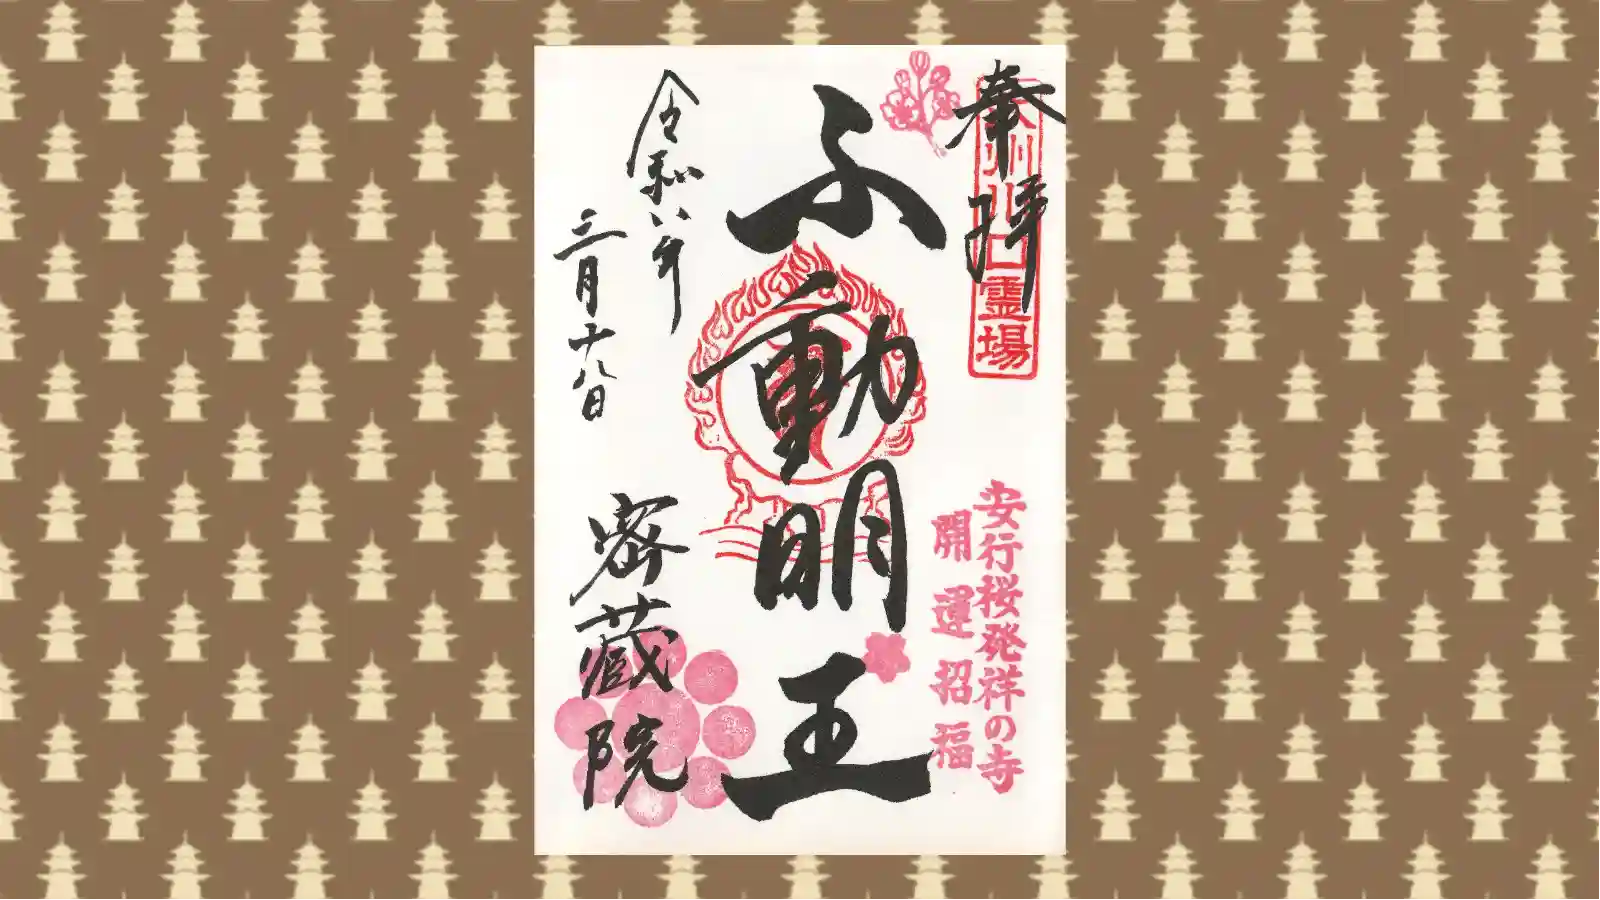 奉拝
武州川口霊場
安行桜発祥の寺
開運招福
ふ動明王
令和八年
三月十八日
密蔵院